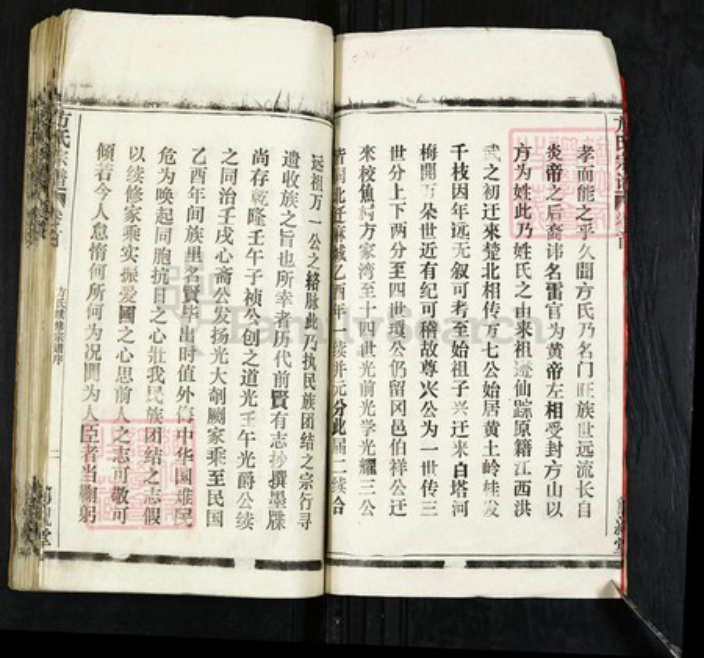 方氏宗谱
孝而能之乎久闻方氏乃名门旺族世远流长自
炎帝之后裔讳名雷官为黄帝左相受封方山以
方为姓此乃姓氏之由来祖迹仙踪原籍江西洪
武之初迁來楚北相传万七公始居黄土岭桂发
千枝因年远无叙可考至始祖子兴迁来白塔河
梅開万朵世近有纪可稽故尊兴公为一世传三
世分上下两分至四世瓊公仍留冈邑伯祥公迁
來校焦樹方家湾至十四世光前光学光耀三公
皆同北迁麻城乙酉年一续并元分此届二续合
远祖万一公之络脉此乃执民族团结之宗行寻
遺收族之旨也所幸者历代前賢有志抄撰墨牒
尚存乾隆壬午子祯公创之道光壬午光爵公续
之同治壬戌心斋公发扬光大剞劂家乘至民国
乙酉年间族里名賢毕出时值外侮中华国难民
危为唤起同胞抗日之心壮我民族团结之志假
以续修家乘实振爱國之心思前人之志可敬可
傾者今人怠惰何所何为况閠为人臣者当鞠躬
方氏宗谱
卷首
方氏续修宗谱序
FamilySearch